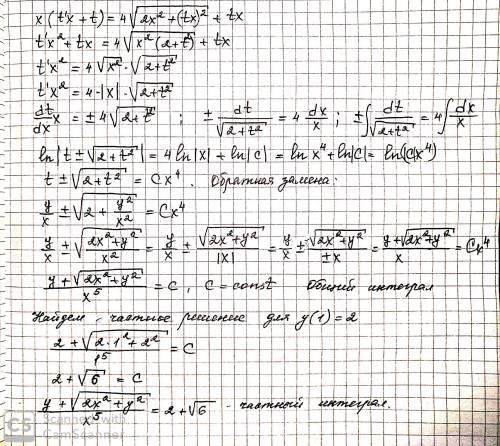 x(t'x + t) = 4√(2x² + (tx)²) + tx
t'x² + tx = 4√(x²(2+t²)) + tx
t'x² = 4√x² · √(2+t²)
t'x² = 4·|x|·√(2+t²)
dt/dx x = ± 4√(2+t²) ; ± dt/√(2+t²) = 4 dx/x ; ±∫ dt/√(2+t²) = 4∫ dx/x
ln|t ± √(2+t²)| = 4 ln|x| + ln|C| = ln x⁴ + ln|C| = ln(|C|x⁴)
t ± √(2+t²) = Cx⁴. Обратная замена:
y/x ± √(2 + y²/x²) = Cx⁴
y/x ± √((2x²+y²)/x²) = y/x ± √(2x²+y²)/|x| = y/x ± √(2x²+y²)/±x = (y+√(2x²+y²))/x = Cx⁴
(y+√(2x²+y²))/x⁵ = C, C = const Общий интеграл
Найдем частное решение для y(1) = 2
(2 + √(2·1² + 2²))/1⁵ = C
2 + √6 = C
(y + √(2x² + y²))/x⁵ = 2 + √6 - частный интеграл.
CS CamScanner